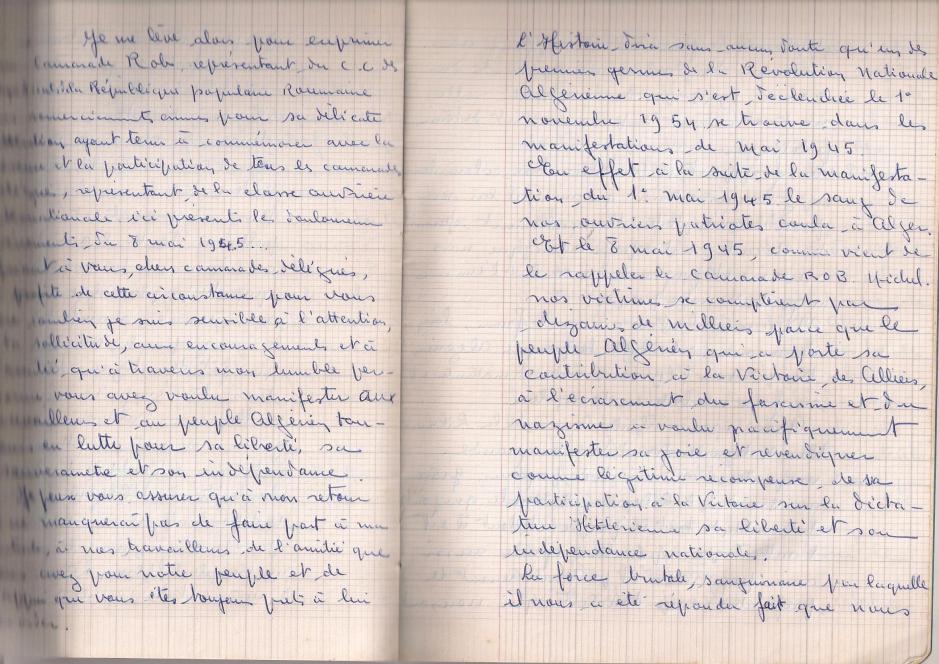 Je me lève alors pour exprimer
Camarade Rob, représentant du c.c des
de la République populaire Roumaine
remerciements émus pour sa délicate
ayant tenu à commémorer avec la
et la participation de tous les camarades
représentant de la classe ouvrière
nationale ici présents les douloureux
du 8 mai 1945...
à vous, chers camarades délégués,
profite de cette circonstance pour vous
combien je suis sensible à l'attention,
sollicitude, aux encouragements et à
qu'à travers mon humble per-
vous avez voulu manifester aux
travailleurs et au peuple Algérien tou-
en lutte pour sa liberté, sa
souveraineté et son indépendance.
Je peux vous assurer qu'à mon retour
manquerai pas de faire part à ma
à nos travailleurs de l'amitié que
avez pour notre peuple et de
que vous êtes toujours prêts à lui
L'Histoire dira sans aucun doute qu'un des
premiers germes de la Révolution Nationale
Algérienne qui s'est déclenchée le 1°
novembre 1954 se trouve dans les
manifestations de mai 1945.
En effet à la suite de la manifesta-
tion du 1° mai 1945 le sang de
nos ouvriers patriotes coula à Alger.
Et le 8 mai 1945, comme vient de
le rappeler le camarade ROB Michel.
nos victimes se comptèrent par
dizaines de milliers parce que le
peuple Algérien qui a porté sa
contribution à la Victoire des Alliés,
à l'écrasement du fascisme et du
nazisme a voulu pacifiquement
manifester sa joie et revendiquer
comme légitime récompense de sa
participation à la Victoire sur la dicta-
ture Hitlérienne sa liberté et son
indépendance nationales.
La force brutale, sanguinaire par laquelle
il nous a été répondu fait que nous